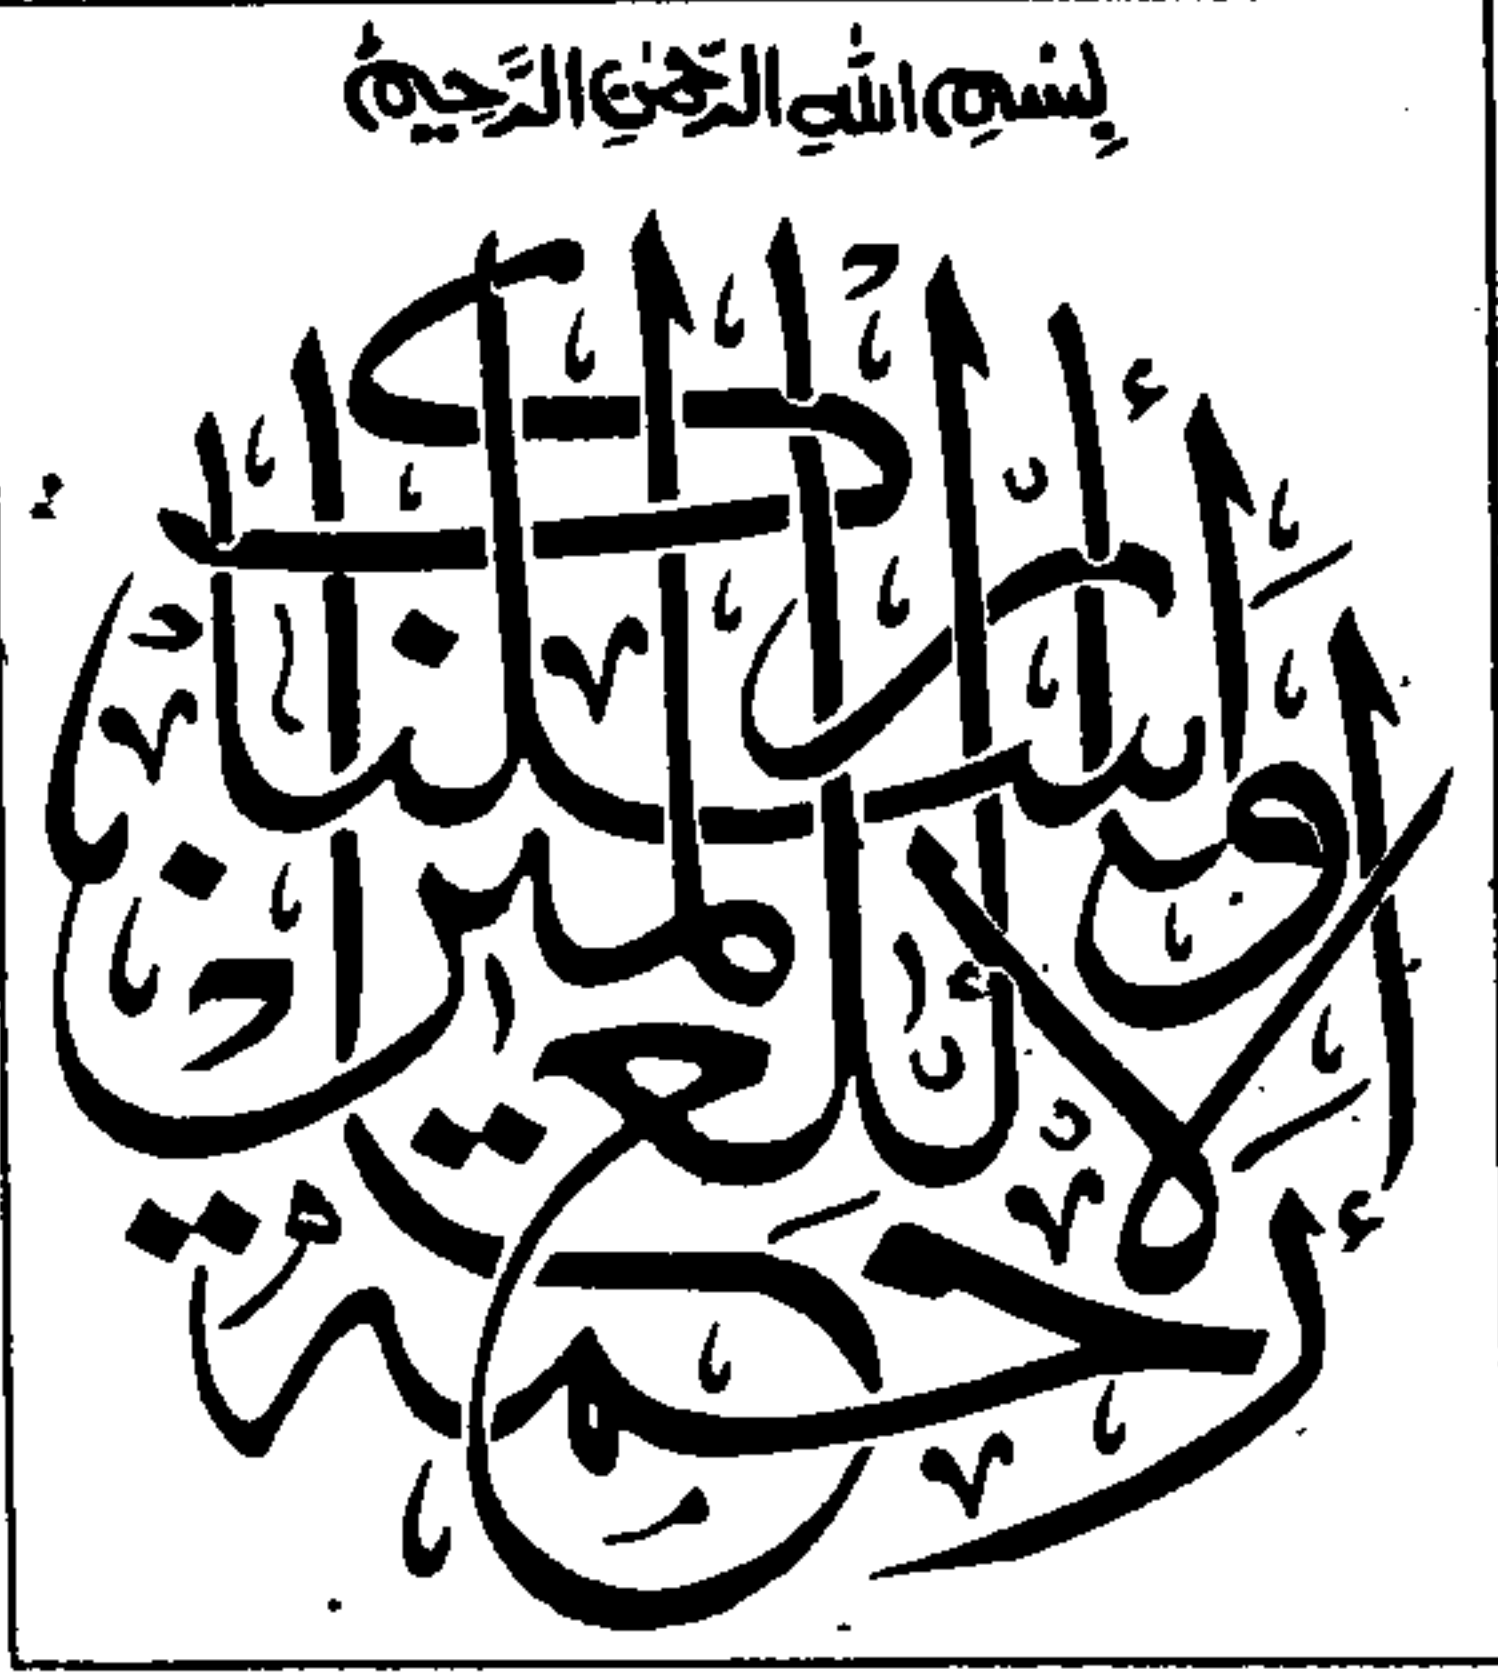 بِسْمِ اللهِ الرَّحْمٰنِ الرَّحِيمِ
وما أرسلناك إلا رحمة للعالمين